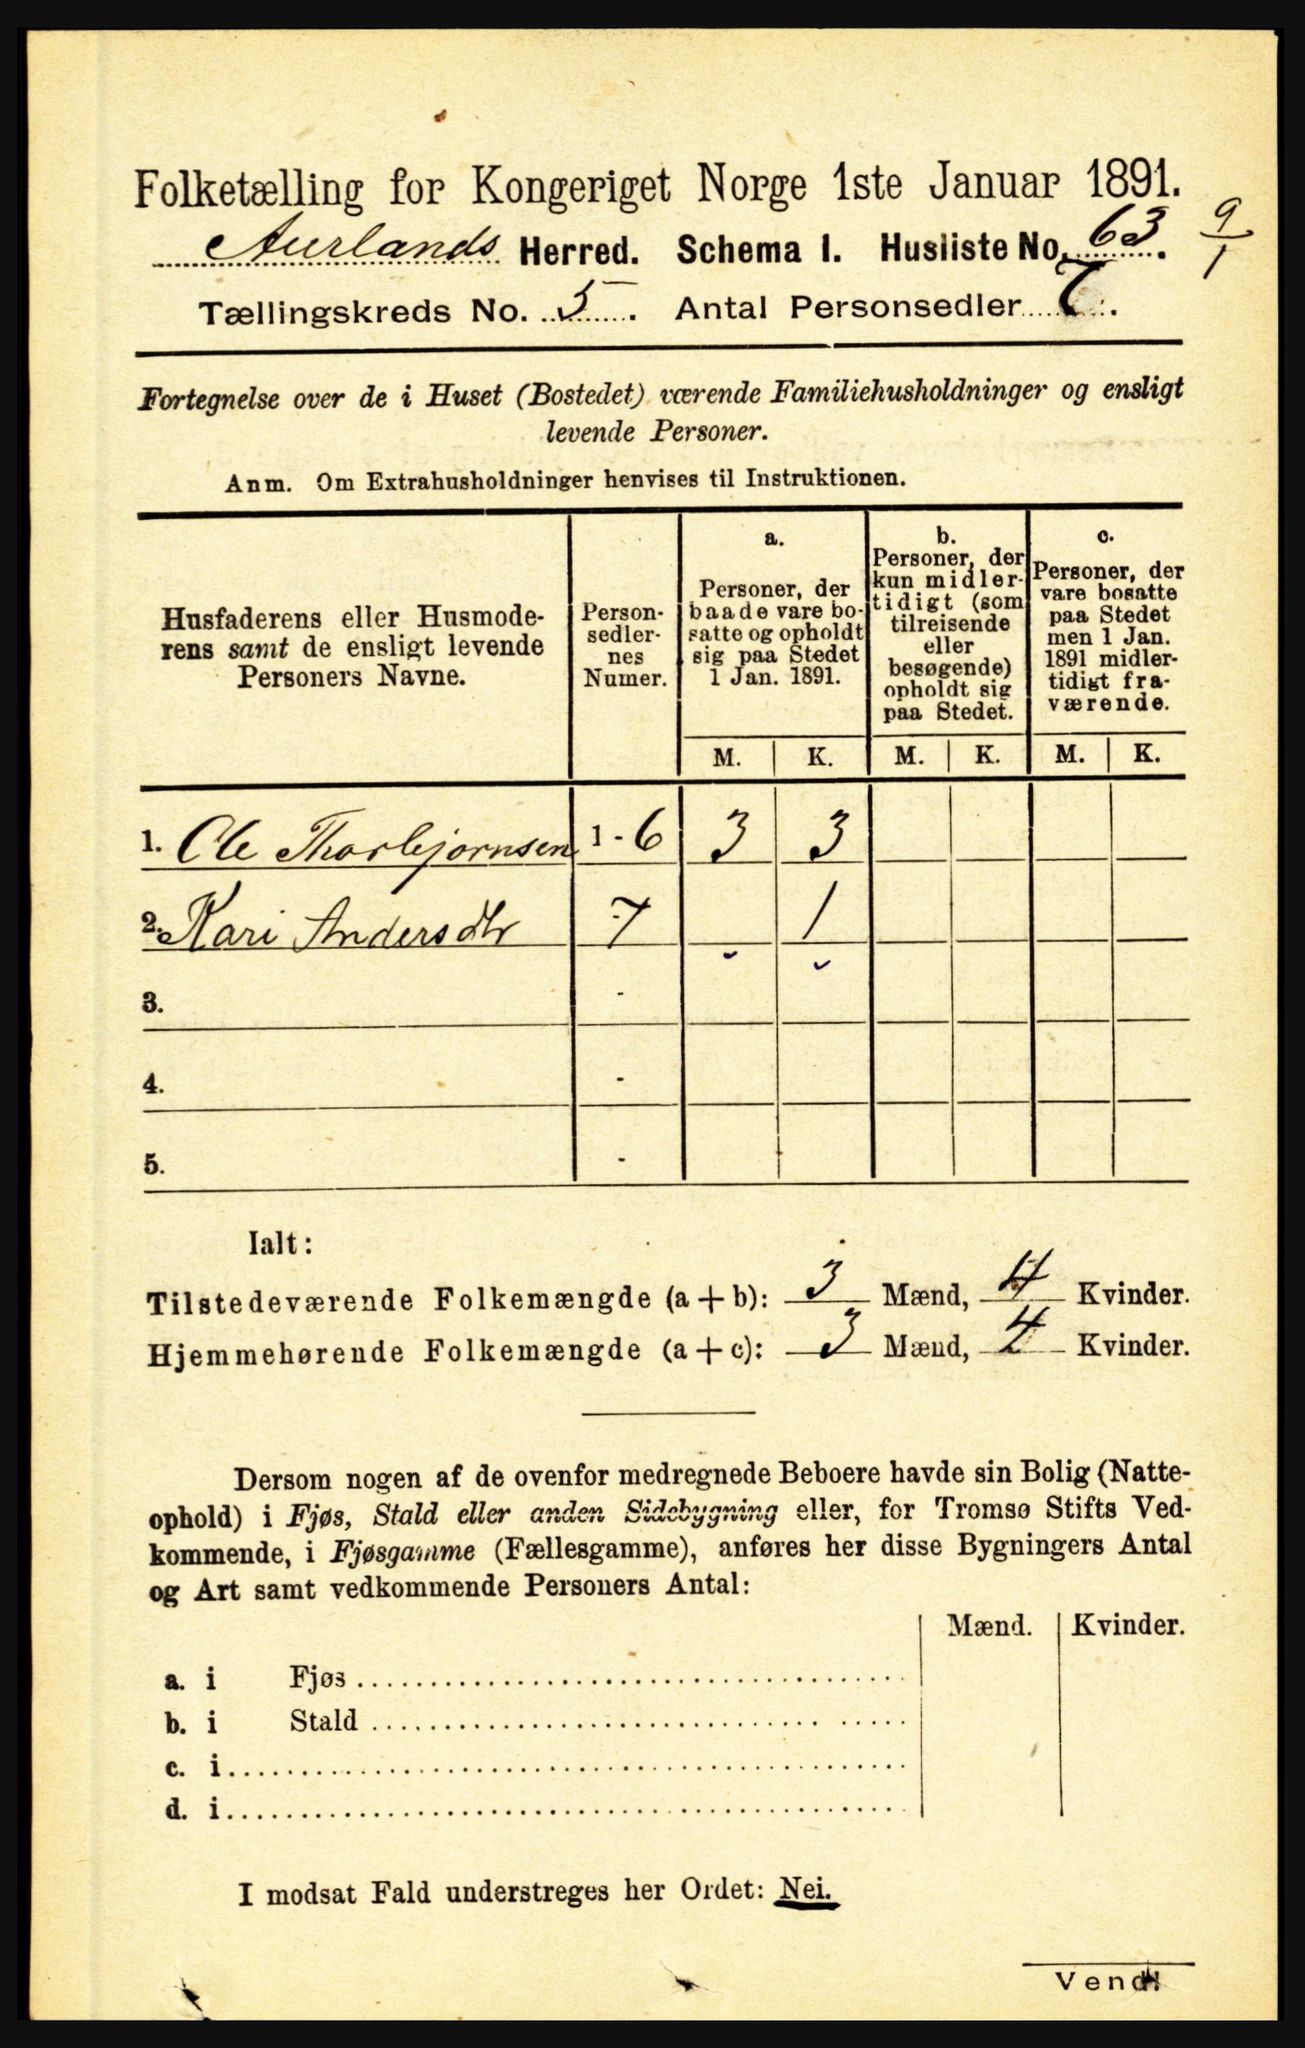 Folketælling for Kongeriget Norge 1ste Januar 1891.
Aurlands Herred. Schema I. Husliste No. 63. 9/1
Tællingskreds No. 5. Antal Personsedler 7.
Fortegnelse over de i Huset (Bostedet) værende Familiehusholdninger og ensligt
levende Personer.
Anm. Om Extrahusholdninger henvises til Instruktionen.
Husfaderens eller Husmode-
rens samt de ensligt levende
Personers Navne.
Person-
sedler-
nes
Numer.
a.
Personer, der
baade vare bo-
satte og opholdt
sig paa Stedet
1 Jan. 1891.
b.
Personer, der
kun midler-
tidigt (som
tilreisende
eller
besøgende)
opholdt sig
paa Stedet.
c.
Personer, der
vare bosatte
paa Stedet
men 1 Jan.
1891 midler-
tidigt fra-
værende.
M. K. M. K. M. K.
1. Ole Thorbjørnsen 1 - 6 3 3
2. Kari Andersdtr 7 1
3. -
4. -
5. -
Ialt:
Tilstedeværende Folkemængde (a + b): 3 Mænd, 4 Kvinder.
Hjemmehørende Folkemængde (a + c): 3 Mænd, 4 Kvinder.
Dersom nogen af de ovenfor medregnede Beboere havde sin Bolig (Natte-
ophold) i Fjøs, Stald eller anden Sidebygning eller, for Tromsø Stifts Ved-
kommende, i Fjøsgamme (Fællesgamme), anføres her disse Bygningers Antal
og Art samt vedkommende Personers Antal:
Mænd. Kvinder.
a. i Fjøs
b. i Stald
c. i
d. i
I modsat Fald understreges her Ordet: Nei.
Vend!